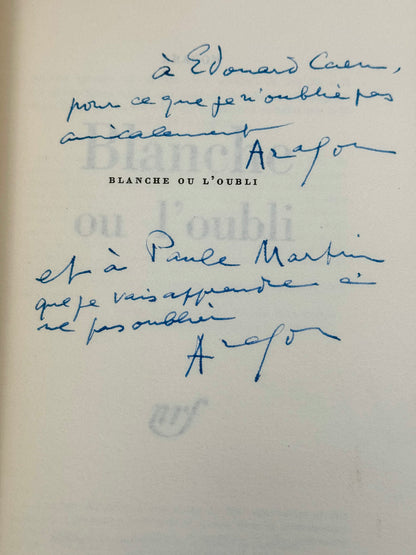 à Edouard Caen,
pour ce que je n'oublie pas
amicalement
Aragon
BLANCHE OU L'OUBLI
Blanche
ou l'oubli
et à Paule Martin
que je vais apprendre à
ne pas oublier
Aragon
nrf